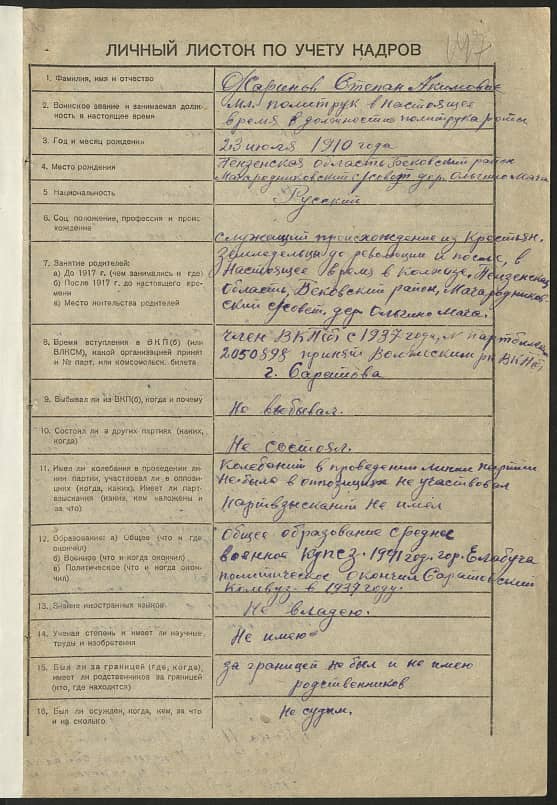 ЛИЧНЫЙ ЛИСТОК ПО УЧЕТУ КАДРОВ
1. Фамилия, имя и отчество
Жаринов Степан Акимович
2. Воинское звание и занимаемая долж-
ность в настоящее время
Мл. политрук в настоящее
время в должности политрука роты
3. Год и месяц рождения
23 июля 1910 года
4. Место рождения
Пензенская область Бековский район
сельсовет дер. Ольгино
5 Национальность
Русский
6. Соц. положение, профессия и проис-
хождение
служащий происхождение из Крестьян.
7. Занятие родителей:
а) До 1917 г. (чем занимались и где)
б) После 1917 г. до настоящего вре-
мени
в) Место жительства родителей
Земледельцы до революции и после, в
Настоящее время в Колхозе, Пензенская
область, Бековский район,
сельсовет, дер. Ольгино
8. Время вступления в ВКП(б) (или
ВЛКСМ), какой организацией принят
и № парт. или комсомольск. билета
член ВКП(б) с 1937 года, № партбилета
2050898 принят Волжским рк ВКП(б)
г. Саратова
9. Выбывал ли из ВКП(б), когда и почему
Не выбывал.
10. Состоял ли в других партиях (каких,
когда)
Не состоял.
11. Имел ли колебания в проведении ли-
нии партии, участвовал ли в оппози-
циях (когда, каких). Имеет ли парт-
взыскания (каких, кем наложены и
за что)
Колебаний в проведении линии партии
не было в оппозициях не участвовал
Партвзысканий не имел
12. Образование: а) Общее (что и где
окончил)
б) Военное (что и когда окончил)
в) Политическое (что и когда окон-
чил)
Общее образование среднее
военное 1941 год. гор. Елабуга
политическое окончил Саратовский
Комвуз. в 1937 году.
13. Знание иностранных языков
Не владею.
14. Ученая степень и имеет ли научные
труды и изобретения
Не имею
15. Был ли за границей (где, когда),
имеет ли родственников за границей
(кто, где находится)
за границей не был и не имею
родственников
16. Был ли осужден, когда, кем, за что
и на сколько
Не судим.